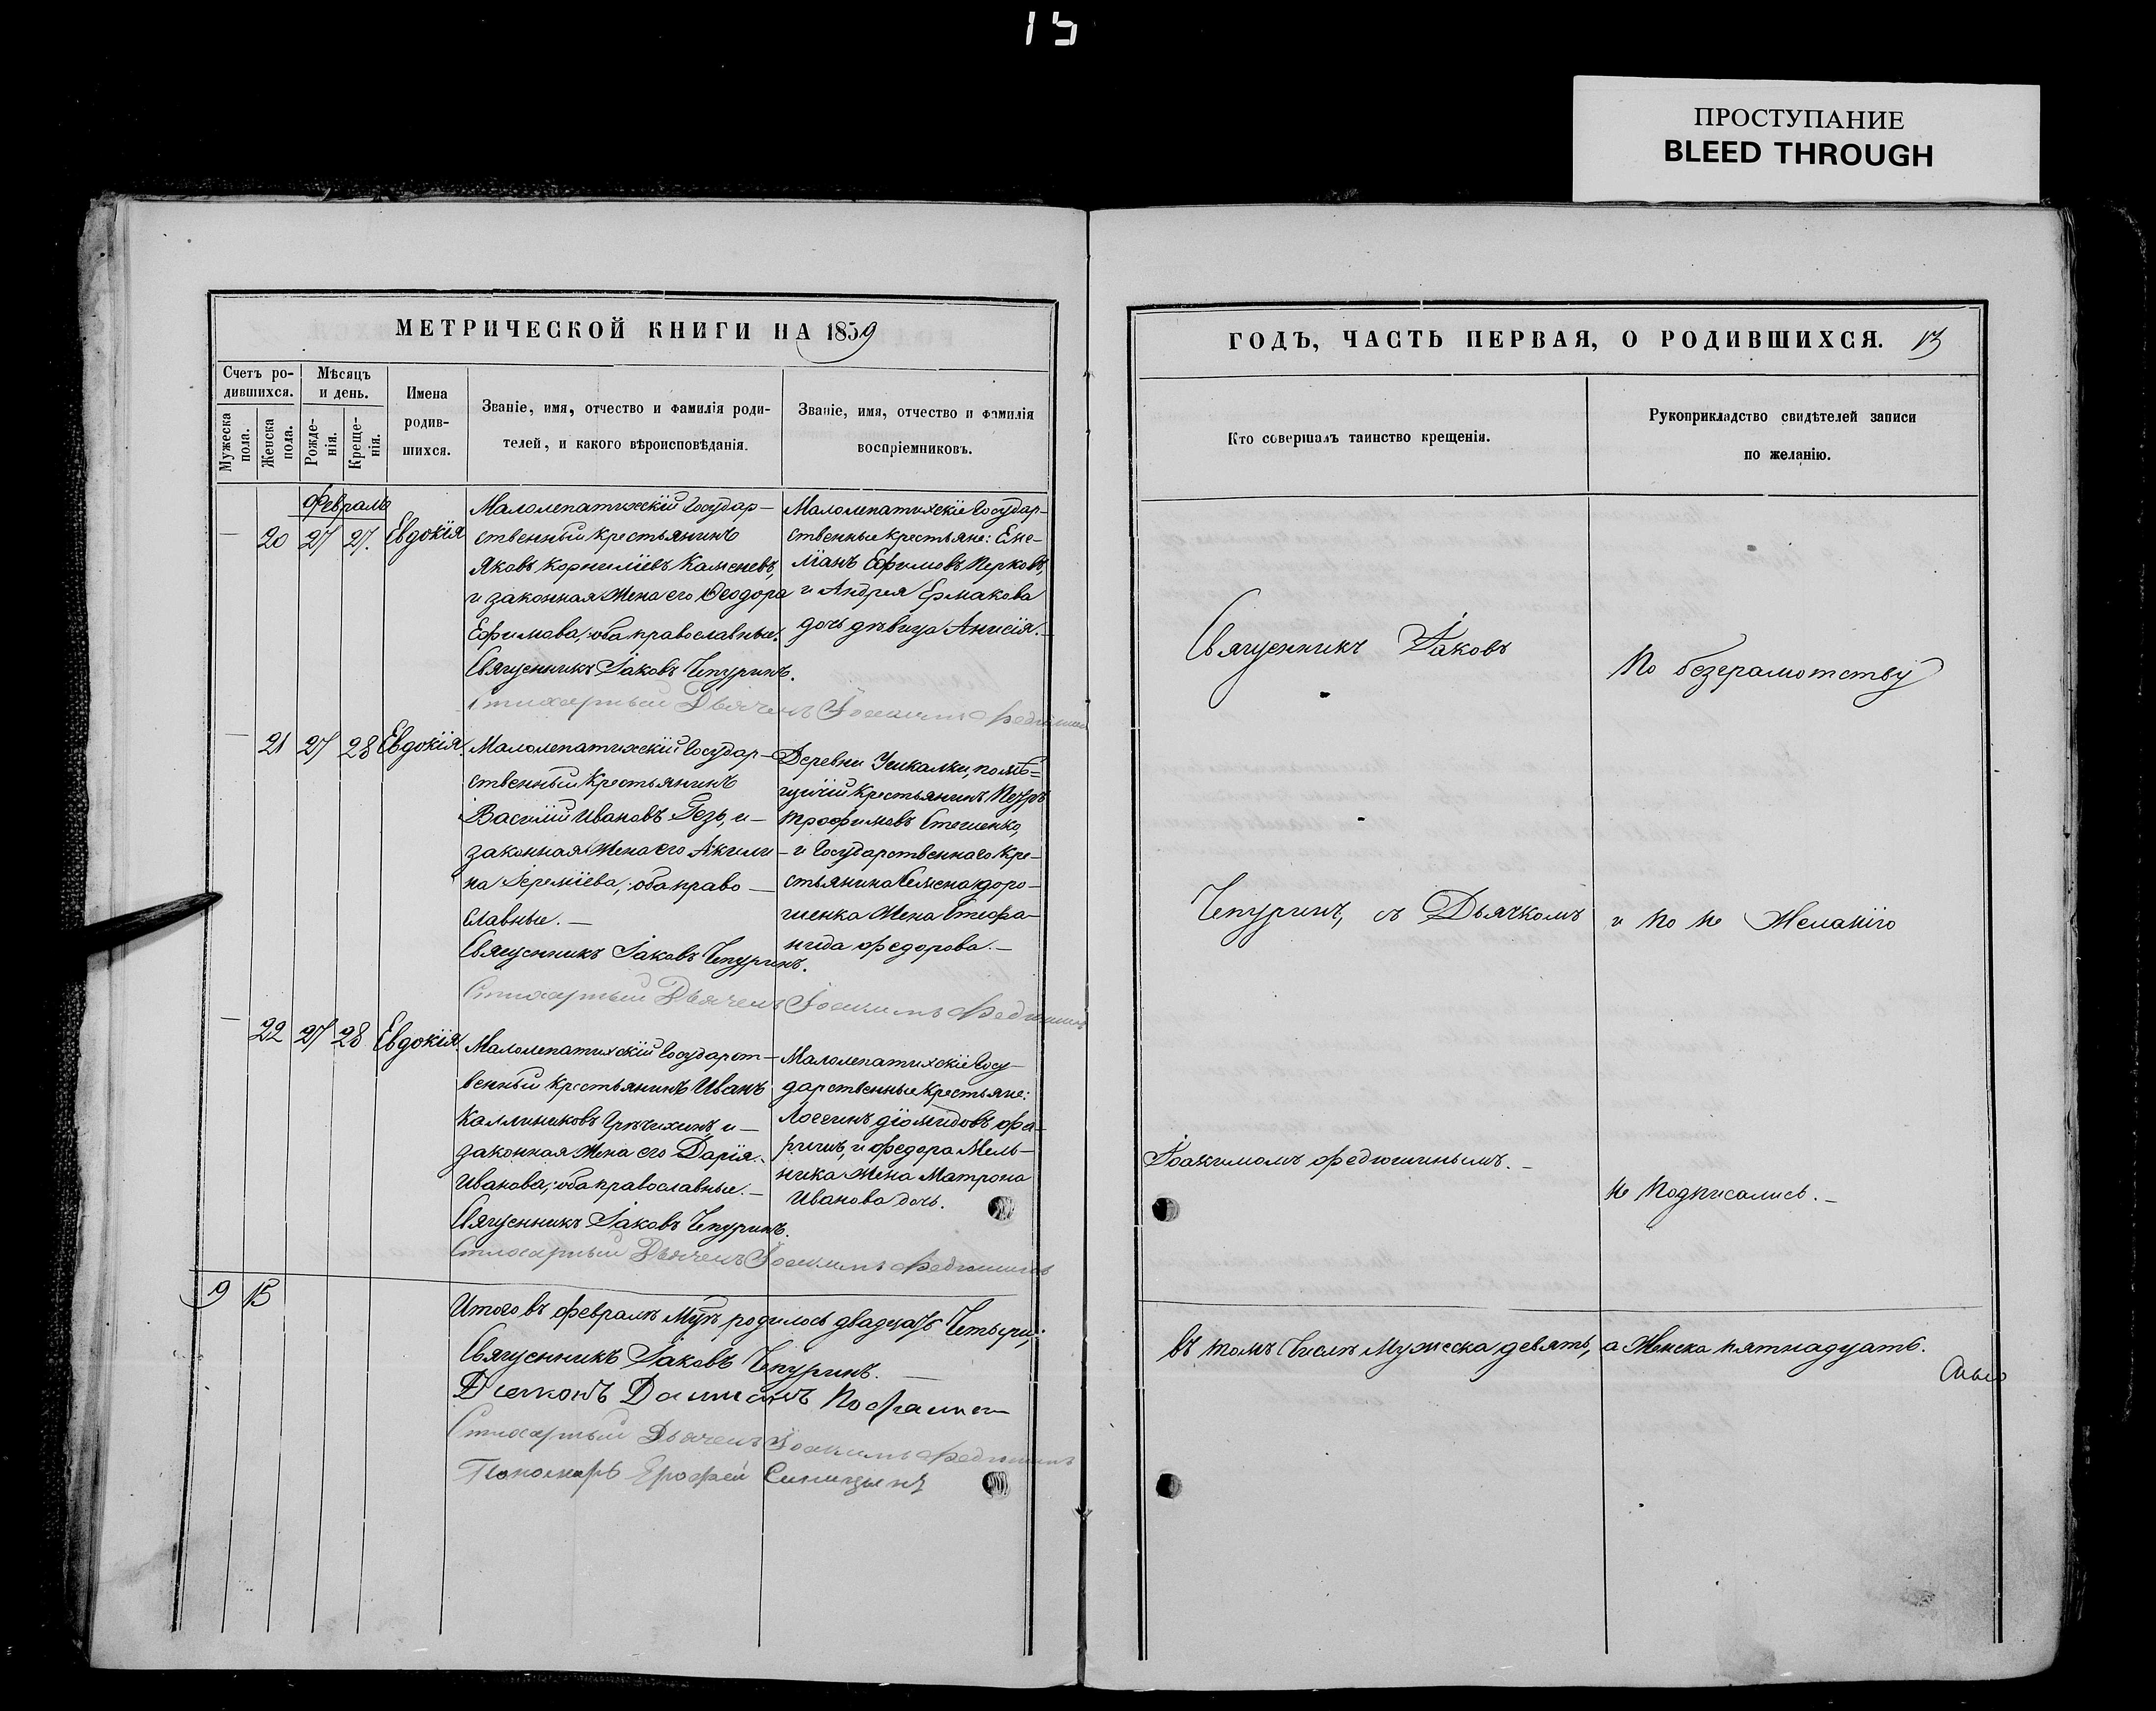 15
ПРОСТУПАНИЕ
BLEED THROUGH
МЕТРИЧЕСКОЙ КНИГИ НА 1859
Счетъ ро-
дившихся.
Мужеска
пола.
Женска
пола.
Мѣсяцъ
и день.
Рожде-
нія.
Креще-
нія.
Имена
родив-
шихся.
Званіе, имя, отчество и фамилія роди-
телей, и какого вѣроисповѣданія.
Званіе, имя, отчество и фамилія
воспріемниковъ.
Февраль
— 20 27 27. Евдокія
Малолепатихскій Государ-
ственный крестьянинъ
Яковъ Корнилiевъ Каменевъ,
и законная жена его Ѳеодора
Ефимова, оба православные.
Священникъ Іаковъ Чепуринъ.
Стихарный Дьячекъ Іоакимъ Федюшинъ
Малолепатихскіе Государ-
ственные крестьяне: Еме-
ліанъ Ефимовъ
и Андрея Ермакова
дочь дѣвица Анисія.—
— 21 27 28 Евдокія.
Малолепатихскій Государ-
ственный крестьянинъ
Василій Ивановъ и—
законная жена его Акили-
на Іереміева, оба право-
славные.—
Священникъ Іаковъ Чепуринъ.
Стихарный Дьячекъ Іоакимъ Федюшинъ
Деревни помѣ=
щичій крестьянинъ Петръ
Трофимовъ Стеценко,
и Государственнаго кре-
стьянина Семена Доро-
шенка жена Стефа-
нида Федорова.—
— 22 27 28 Евдокія.
Малолепатихскій Государст-
венный крестьянинъ Иванъ
Каллиниковъ Грѣчихинъ и—
законная жена его Дарія
Иванова, оба православные.—
Священникъ Іаковъ Чепуринъ.
Стихарный Дьячекъ Іоакимъ Федюшинъ
Малолепатихскіе Госу-
дарственные крестьяне:
Логгинъ Діомидовъ
и Федора Мель-
ника жена Матрона
Иванова дочь.
9 15
Итого въ Февралѣ Мцѣ родилось двадцать четыри;
Священникъ Іаковъ Чепуринъ.—
Стихарный Дьячекъ Іоакимъ Федюшинъ
Пономарь Ерофей Синицынъ
ГОДЪ, ЧАСТЬ ПЕРВАЯ, О РОДИВШИХСЯ. 13
Кто совершалъ таинство крещенія.
Рукоприкладство свидѣтелей записи
по желанію.
Священникъ Іаковъ
Чепуринъ, съ Дьячкомъ
Іоакимомъ Федюшинымъ.—
По безграмотству
и по не желанію
не подписались.—
въ томъ числѣ мужеска девять, а женска пятнадцать.